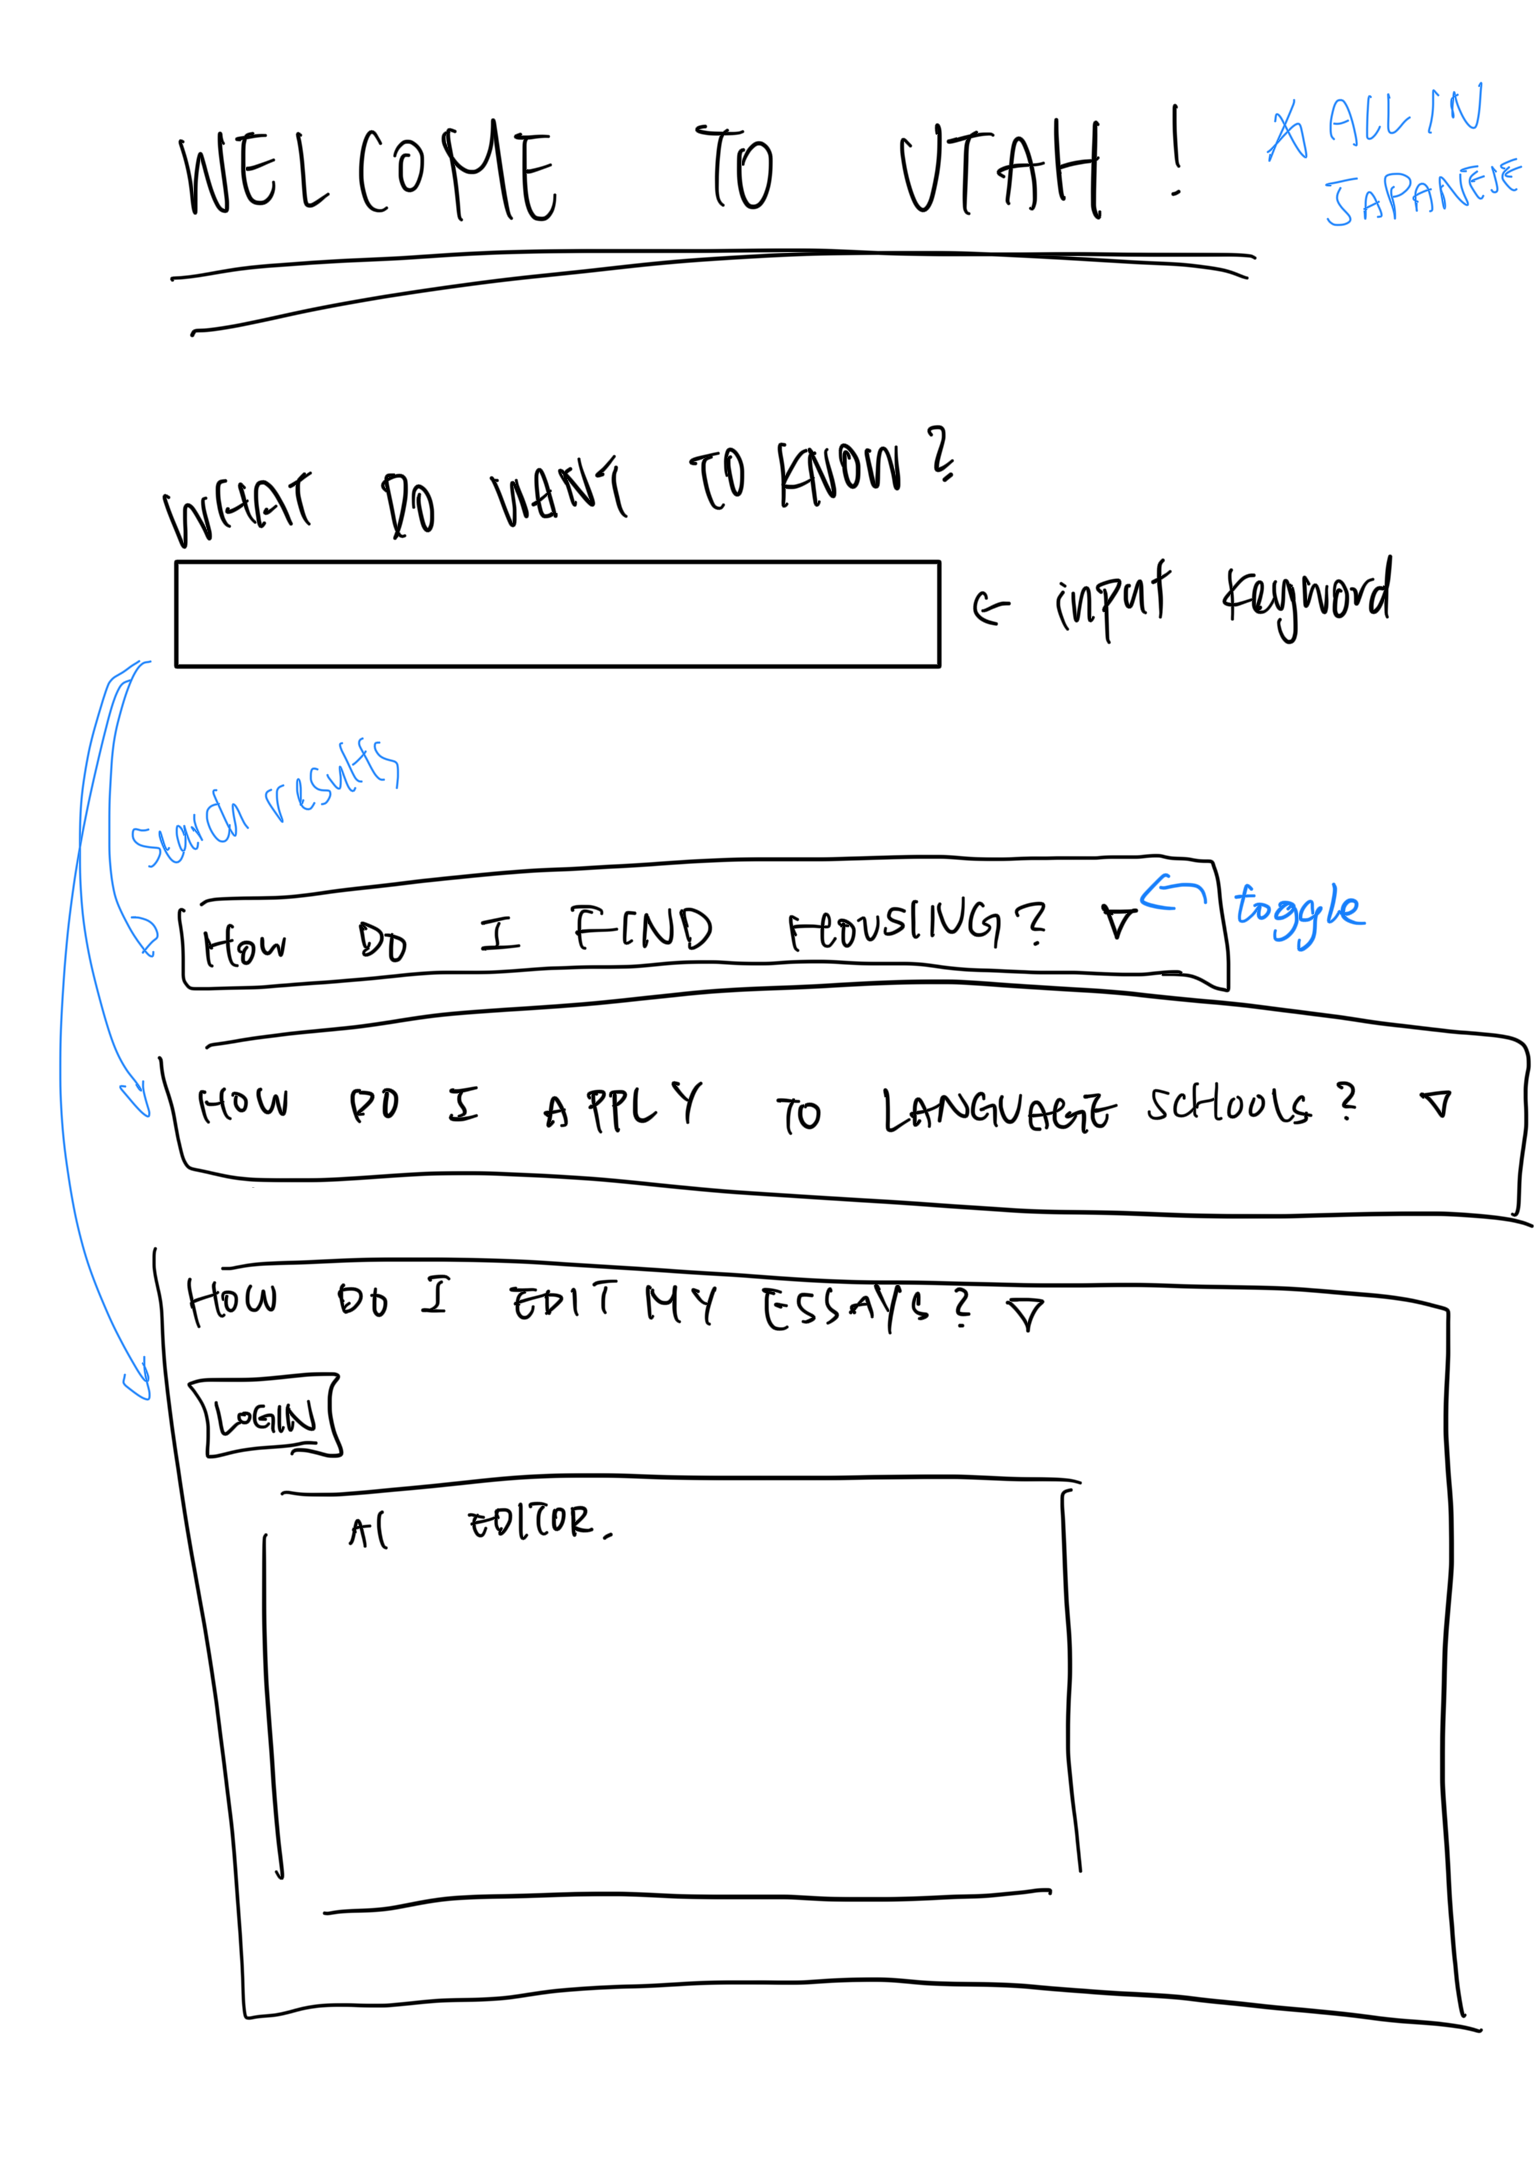 WELCOME TO UTAH!
ALL IN
JAPANESE
WHAT DO WANT TO KNOW?
← input keyword
search results
HOW DO I FIND HOUSING? ▽
toggle
HOW DO I APPLY TO LANGUAGE SCHOOLS? ▽
HOW DO I EDIT MY ESSAYS? ▽
LOGIN
AI EDITOR.